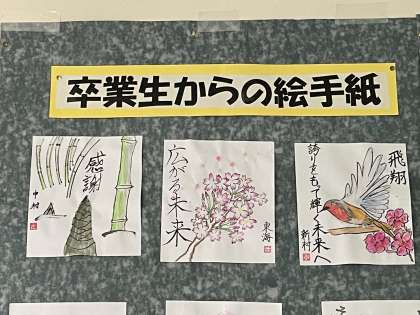 卒業生からの絵手紙
感謝
中村
広がる未来
東海
飛翔
誇りをもて輝く未来へ
新村